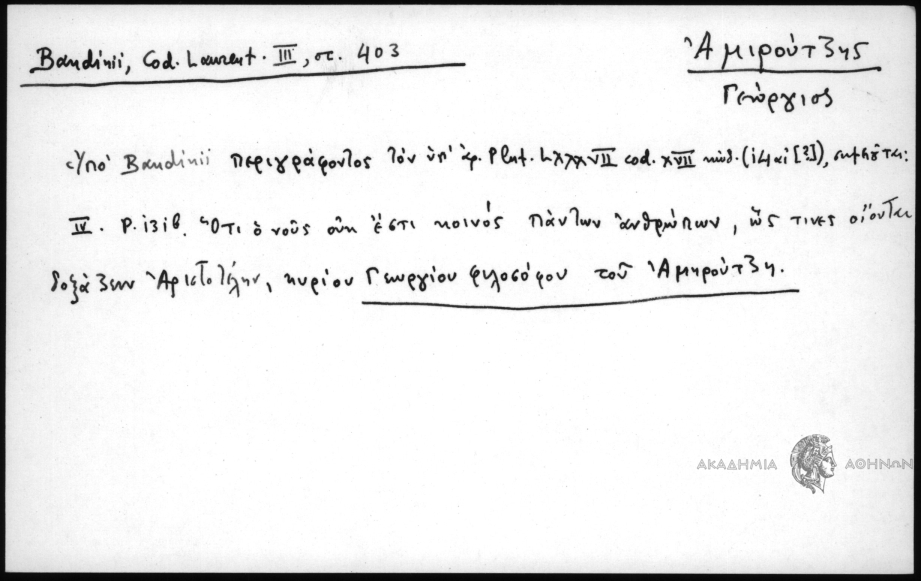 Bandinii, Cod. Laurent. III, στ. 403
Ἀμιρούτζης
Γεώργιος
Ὑπὸ Bandinii περιγράφοντος τὸν ὑπ' ἀρ. Plut. LXXXVII cod. XVII κώδ. (ι4 αἰ [?]), σημειοῦται:
IV. P. 131β. Ὅτι ὁ νοῦς οὐκ ἔστι κοινός πάντων ἀνθρώπων, ὥς τινες οἴονται
δοξάζειν Ἀριστοτέλην, κυρίου Γεωργίου φιλοσόφου τοῦ Ἀμηρούτζη.
ΑΚΑΔΗΜΙΑ ΑΘΗΝΩΝ